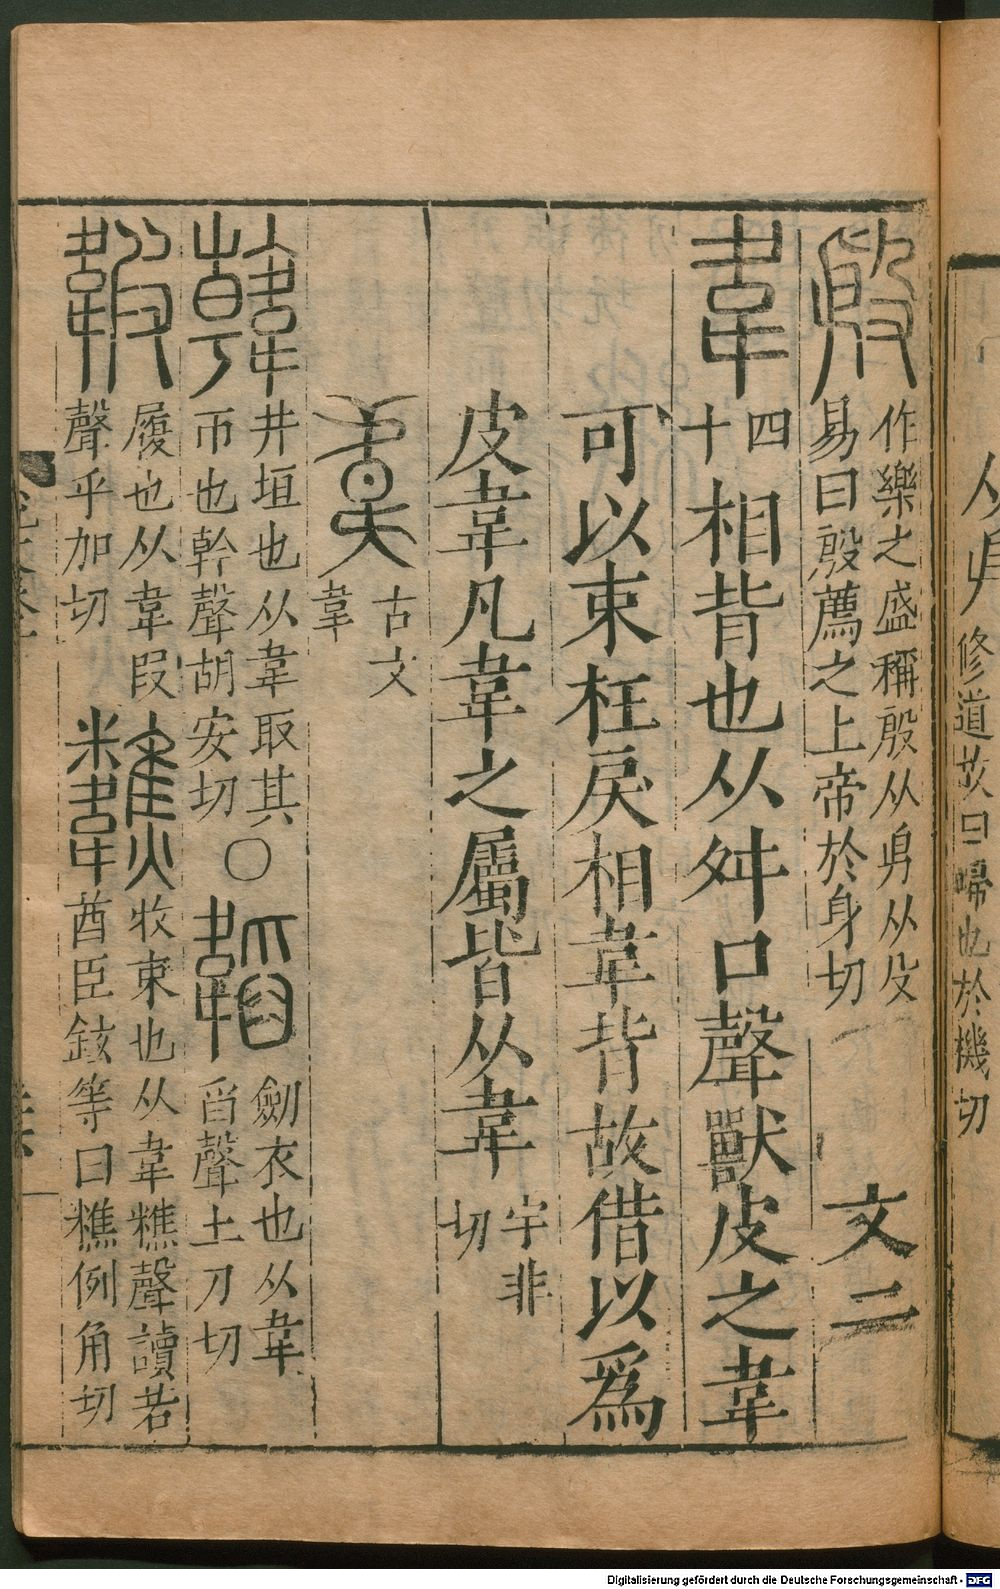 从㐆
修道故曰㱕也於機切
殷
作樂之盛稱殷从㐆从殳
易曰殷薦之上帝於身切
文二
韋
四十
相背也从舛口聲獸皮之韋
可以束枉戾相韋背故借以爲
皮韋凡韋之屬皆从韋
宇非切
古文韋
韓
井垣也从韋取其
帀也倝聲胡安切
○
韜
劒衣也从韋
舀聲土刀切
韖
履也从韋叚
聲乎加切
收束也从韋樵聲讀若
酋臣鉉等曰糕例角切
Digitalisierung gefördert durch die Deutsche Forschungsgemeinschaft - DFG